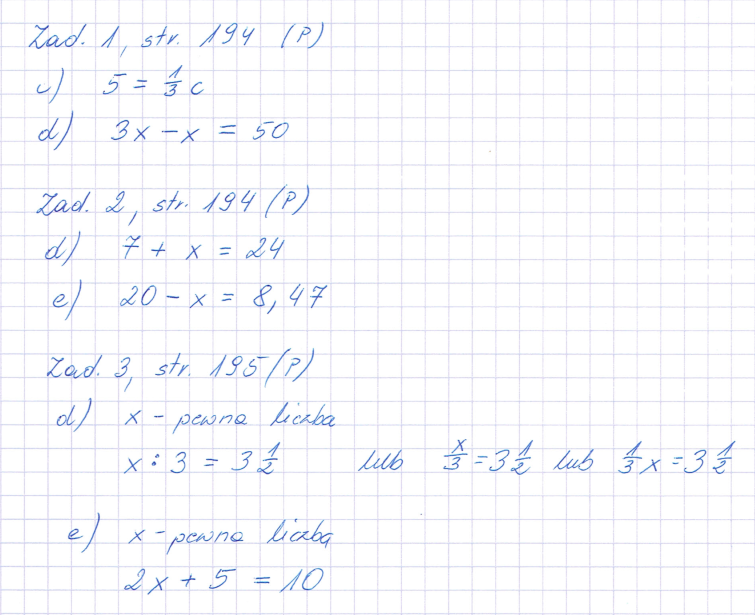 Zad. 1, str. 194 (P)
c) 5 = 1/3 c
d) 3x - x = 50
Zad. 2, str. 194 (P)
d) 7 + x = 24
e) 20 - x = 8,47
Zad. 3, str. 195 (P)
d) x - pewna liczba
x : 3 = 3 1/2 lub x/3 = 3 1/2 lub 1/3 x = 3 1/2
e) x - pewna liczba
2x + 5 = 10